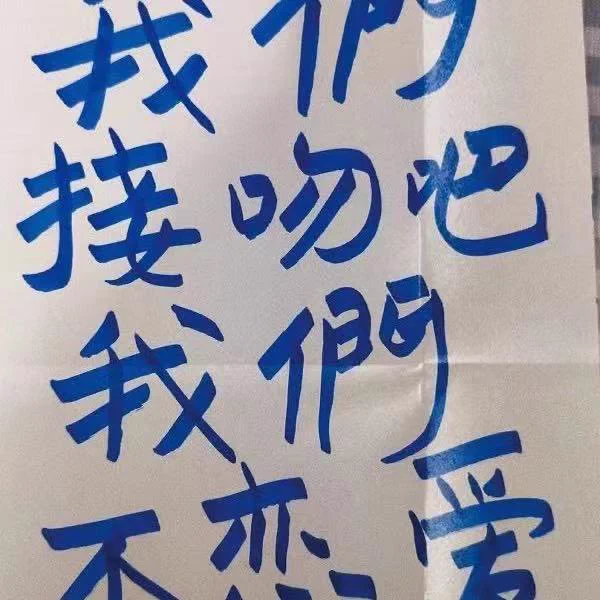 我們
接吻吧
我們
不恋爱